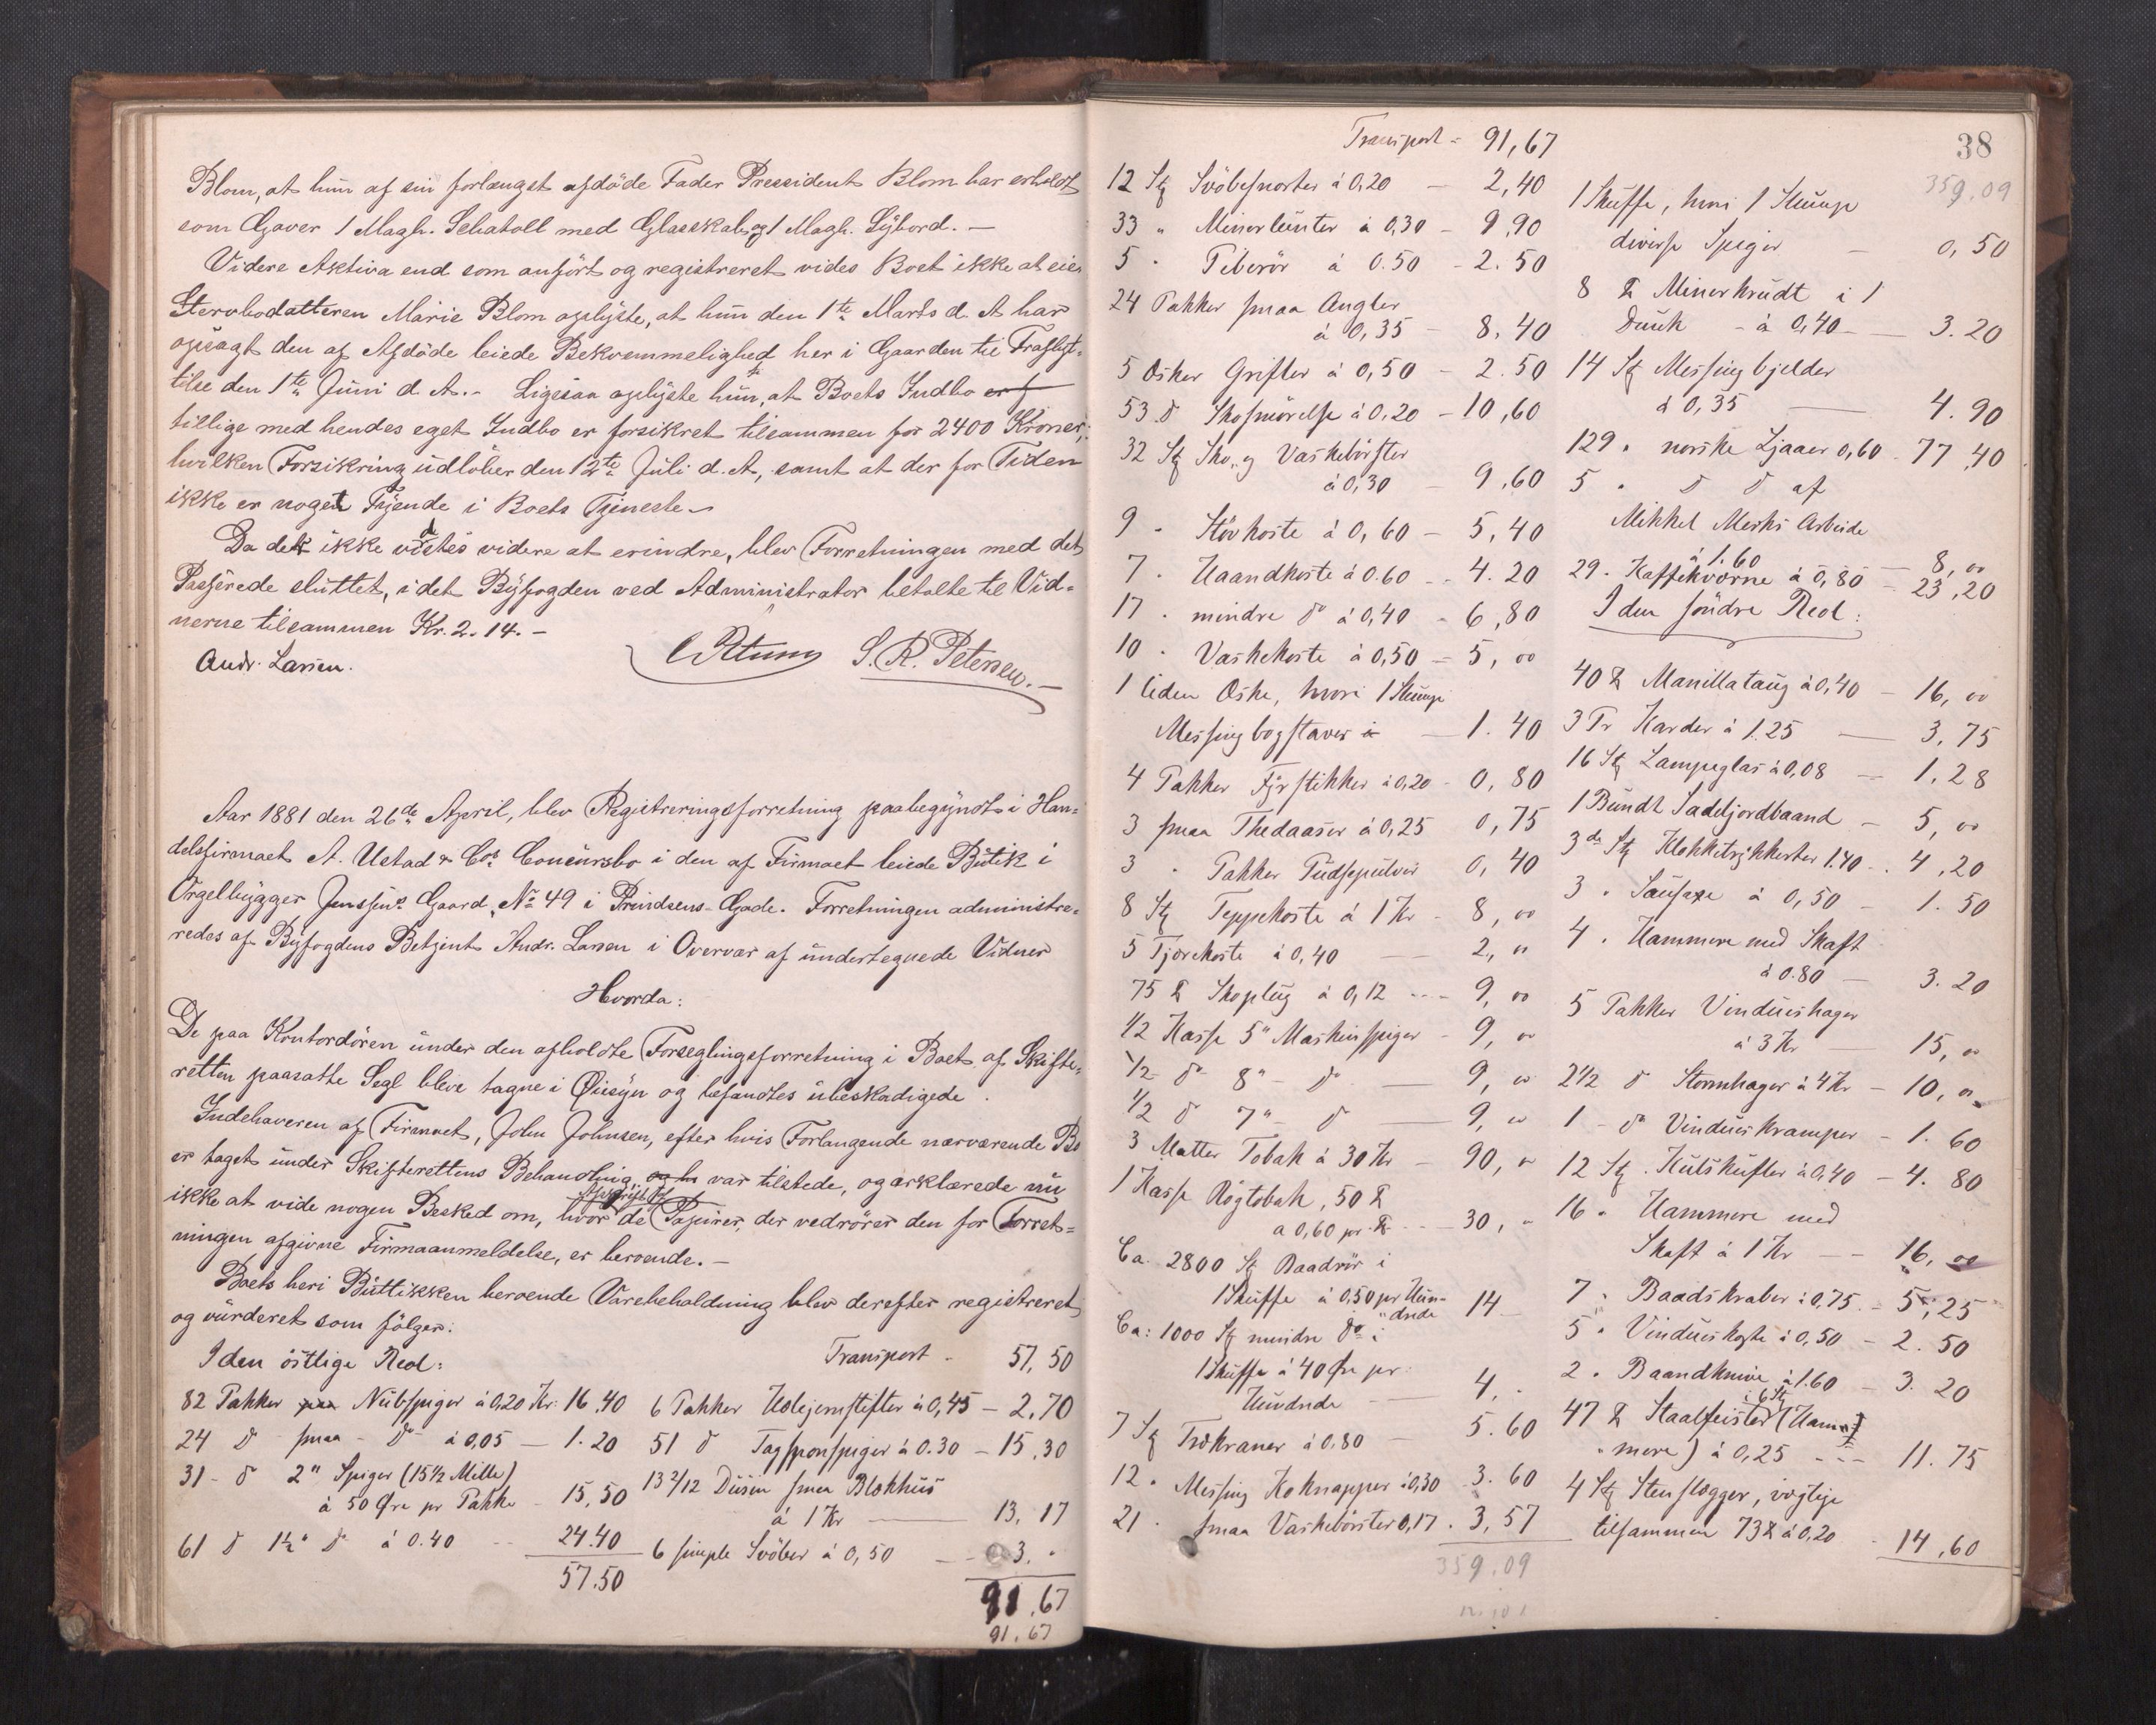 Blom, at hun af sin forlængst afdöde Fader President Blom har erholdt
som Gaver 1 Magh. Schatoll med Glasskab og 1 Magh. Sÿbord. —
Videre Aktiva end som anfört og registreret vides Boet ikke at eie.
Stervbodatteren Marie Blom oplÿste, at hun den 1te Marts d. A. har
opsagt den af Afdöde leiede Bekvemmelighed her i Gaarden til Fraflyt-
telse den 1te Juni d. A. - Ligesaa oplÿste hun, at Boets Indbo er f
tillige med hendes eget Indbo er forsikret tilsammen for 2400 Kroner,
hvilken Forsikring udlöber den 12te Juli d. A., samt at der for Tiden
ikke er noget Tyende i Boets Tjeneste. -
Da det ikke vidstes videre at erindre, blev Forretningen med det
Passerede sluttet, idet Bÿfogden ved Administrator betalte til Vid-
nerne tilsammen Kr. 2.14. -
Andr. Larsen.
S. R. Petersen. -
Aar 1881 den 26de April, blev Registreringsforretning paabegÿndt i Han-
delsfirmaet A. Ustad & Cos Concursbo i den af Firmaet leiede Butik i
Orgelbÿgger Jenssens Gaard, No 49 i Prindsens-Gade. Forretningen administre-
redes af Bÿfogdens Betjent Andr. Larsen i Overvær af undertegnede Vidner
Hvorda:
De paa Kontordören under den afholdte Forseglingsforretning i Boet af Skifte-
retten paasatte Segl bleve tagne i Öiesÿn og befandtes ubeskadigede.
Indehaveren af Firmaet, John Johnsen, efter hvis Forlangende nærværende Bo
er taget under Skifterettens Behandling, og h var tilstede, og erklærede nu
ikke at vide nogen Besked om, hvor Afskrift af de Papirer, der vedrörer den for Forret-
ningen afgivne Firmaanmeldelse, er beroende. -
Boets heri Buttikken beroende Varebeholdning blev derefter registreret
og vurderet som fölger:
I den östlige Reol:
82 Pakker Nubspiger à 0,20 Kr. 16.40
24 do smaa - do - à 0,05 — 1.20
31 - do 2" Spiger (15 1/2 Mille)
à 50 Øre pr Pakke - 15,50
61 do 1 1/2" do à 0.40 - 24.40
57.50
Transport - 57,50
6 Pakker Holjernstifter à 0,45 — 2,70
51 do Tagsponspiger à 0.30 — 15,30
13 2/12 Dusin smaa Blokhus
à 1 Kr — 13,17
6 simple Svöber à 0,50 — 3. "
91.67
91.67
Transport - 91,67
12 St Svöbesnorter à 0,20 — 2,40
33 " Minerlunter à 0,30 - 9,90
5 " Piberör à 0.50 - 2.50
24 Pakker smaa Angler
à 0,35 - 8.40
5 Æsker Grifler à 0,50 - 2.50
53 do Skosmörelse à 0.20 - 10,60
32 St Sko- og Vaskebörster
à 0,30 - 9,60
9 " Stövkoste à 0,60 - 5,40
7 " Haandkoste à 0.60 - 4.20
17 " mindre do à 0,40 - 6,80
10 " Vaskekoste à 0,50 = 5,00
1 liden Æske, hvori 1 Slump
Messingbogstaver — 1.40
4 Pakker Fÿrstikker à 0,20 - 0,80
3 smaa Thedaaser à 0,25 0,75
3 " Pakker Pudsepulver 0,40
8 St Teppekoste à 1 Kr - 8,00
5 Tjærekoste à 0,40 — 2,00
75 ℔ Skoplug à 0,12 --- 9,00
1/2 Kasse 5" Maskinspiger - 9,00
1/2 - do - 8" - do — 9,00
1/2 do 7" do — 9,00
3 Matter Tobak à 30 Kr - 90,00
1 Kasse Rögtobak, 50 ℔
a 0,60 pr ℔ --- 30, "
Ca. 2800 St Baadrör i
1 Skuffe à 0,50 pr Hun-
drede 14 -
Ca: 1000 St mindre do i
1 Skuffe à 40 Øre pr
Hundrede — 4, "
7 St Trækraner à 0.80 - 5.60
12 " Messing Koknapper à 0,30 3.60
21 " smaa Vaskebörster 0,17 . 3,57
359.09
38
359.09
1 Skuffe, hvori 1 Slump
diverse Spiger — 0,50
8 ℔ Minerkrudt i 1
Dunk - à 0,40 — 3.20
14 St Messingbjelder
à 0,35 — 4.90
129 " norske Ljaaer 0,60 - 77,40
5 " do do af
Mikkel Merks Arbeide
à 1.60 — 8,00
29 " Kaffekværne à 0,80 - 23,20
I den söndre Reol:
40 ℔ Manillataug à 0,40 - 16,00
3 Pr Karder à 1.25 — 3,75
16 St Lampeglas à 0,08 — 1.28
1 Bundt Sadeljordbaand - 5,00
3 St 1.40 - 4,20
3 " Sausaxe à 0,50 - 1.50
4 " Hammere med Skaft
à 0.80 - 3.20
5 Pakker Vindueshager
à 3 Kr — 15,00
2 1/2 do Stormhager à 4 Kr - 10,00
1 - do Vindueskramper - 1.60
12 St. Kulskufler à 0,40 - 4.80
16 " Hammere med
Skaft à 1 Kr — 16,00
7 " Baadskraber à 0,75 - 5,25
5 " Vindueskoste à 0,50 - 2.50
2 " Baandknive à 1.60 - 3.20
47 ℔ Staalfeister i 6 St (Ham-
mere) à 0,25 --- 11.75
4 St Stenslægger, vægtige
tilsammen 73 ℔ à 0,20 - 14,60